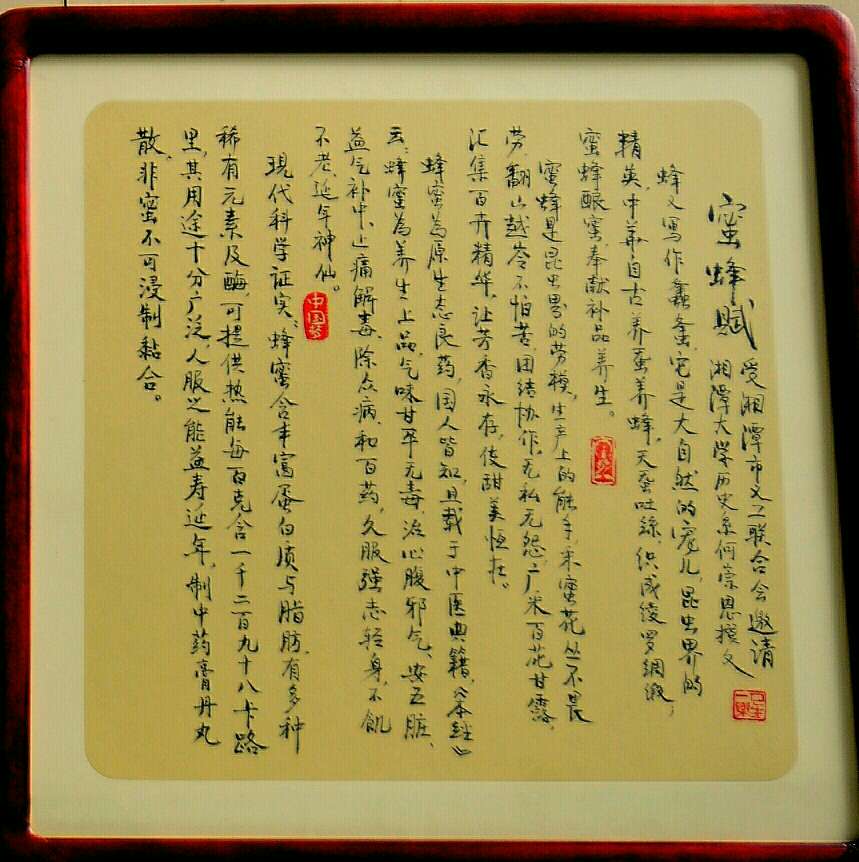 蜜蜂赋
受湘潭市义工联合会邀请
湘潭大学历史系何崇恩撰文
蜂又写作蠭䗬,它是大自然的宠儿,昆虫界的
精英,中华自古养蚕养蜂,天蚕吐絲,织成绫罗绸缎,
蜜蜂酿蜜,奉献补品养生。
蜜蜂是昆虫界的劳模,生产上的能手,采蜜花丛不畏
劳,翻山越岺不怕苦,团结协作,无私无怨,广采百花甘露,
汇集百卉精华,让芳香永存,使甜美恒在。
蜂蜜为原生态良药,国人皆知,且载于中医典籍,《本经》
云:蜂蜜为养生上品,气味甘平无毒,治心腹邪气、安五脏、
益气补中、止痛解毒、除众病、和百药,久服强志轻身,不飢
不老、延年神仙。
中国梦
现代科学证实:蜂蜜含丰富蛋白质与脂肪,有多种
稀有元素及酶,可提供热能每百克含一千二百九十八卡路
里,其用途十分广泛,人服之能益寿延年,制中药膏丹丸
散,非蜜不可浸制黏合。